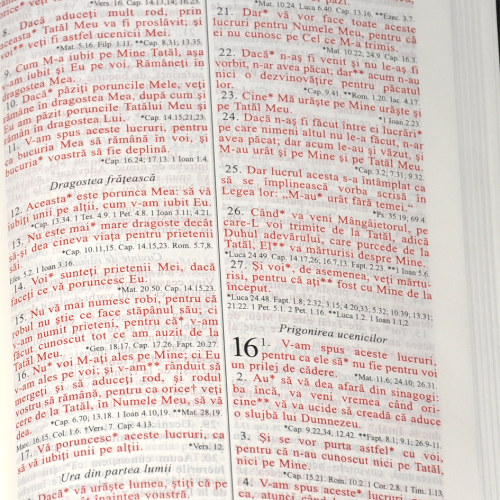 8. Dacă aduceți mult rod, prin
aceasta* Tatăl Meu va fi proslăvit; și
voi** veți fi astfel ucenicii Mei.
*Mat. 5.16. Filp. 1.11. **Cap. 8.31; 13.35.
9. Cum M-a iubit pe Mine Tatăl, așa
v-am iubit și Eu pe voi. Rămâneți în
dragostea Mea.
10. Dacă* păziți poruncile Mele, veți
rămâne în dragostea Mea, după cum și
Eu am păzit poruncile Tatălui Meu și
rămân în dragostea Lui. *Cap. 14.15,21,23.
11. V-am spus aceste lucruri, pentru
ca bucuria Mea să rămână în voi, și
bucuria* voastră să fie deplină.
*Cap. 16.24; 17.13. 1 Ioan 1.4.
Dragostea frățească
12. Aceasta* este porunca Mea: să vă
iubiți unii pe alții, cum v-am iubit Eu.
*Cap. 13.34. 1 Tes. 4.9. 1 Pet. 4.8. 1 Ioan 3.11; 4.21.
13. Nu este mai* mare dragoste decât
să-și dea cineva viața pentru prietenii
săi. *Cap. 10.11,15. Cap. 14.15,23. Rom. 5.7,8.
Efes. 5.2. 1 Ioan 3.16.
14. Voi* sunteți prietenii Mei, dacă
faceți ce vă poruncesc Eu.
*Mat. 20.50. Cap. 14.15,23.
15. Nu vă mai numesc robi, pentru că
robul nu știe ce face stăpânul său; ci
v-am numit prieteni, pentru că* v-am
făcut cunoscut tot ce am auzit de la
Tatăl Meu. *Gen. 18.17. Cap. 17.26. Fapt. 20.27.
16. Nu* voi M-ați ales pe Mine; ci Eu
v-am ales pe voi; și v-am** rânduit să
mergeți și să aduceți rod, și rodul
vostru să rămână, pentru ca orice† veți
cere de la Tatăl, în Numele Meu, să vă
dea. *Cap. 6.70; 13.18. 1 Ioan 4.10,19. **Mat. 28.19.
Marc. 16.15. Col. 1.6. †Vers. 7. Cap. 4.13.
17. Vă poruncesc* aceste lucruri, ca
să vă iubiți unii pe alții. *Vers. 12.
Ura din partea lumii
18. Dacă* vă urăște lumea, știți că pe
*Mat. 10.24. Luca 6.40. Cap. 13.16. **Ezec. 3.7.
21. Dar* vă vor face toate aceste
lucruri pentru Numele Meu, pentru că
ei nu cunosc pe Cel ce M-a trimis.
*Mat. 10.22, 24.9. Cap. 16.3.
22. Dacă* n-aș fi venit și nu le-aș fi
vorbit, n-ar avea păcat; dar** acum n-au
nici o dezvinovățire pentru păcatul
lor. *Cap. 9.41. **Rom. 1.20. Iac. 4.17.
23. Cine* Mă urăște pe Mine urăște și
pe Tatăl Meu. *1 Ioan 2.23.
24. Dacă n-aș fi făcut între ei lucrări*
pe care nimeni altul nu le-a făcut, n-ar
avea păcat; dar acum le-au și văzut, și
M-au urât și pe Mine și pe Tatăl Meu.
*Cap. 3.2; 7.31; 9.32.
25. Dar lucrul acesta s-a întâmplat ca
să se împlinească vorba scrisă în
Legea lor: „M-au* urât fără temei.“
*Ps. 35.19; 69.4.
26. Când* va veni Mângâietorul, pe
care-L voi trimite de la Tatăl, adică
Duhul adevărului, care purcede de la
Tatăl, El** va mărturisi despre Mine.
*Luca 24.49. Cap. 14.17,26; 16.7,13. Fapt. 2.23. **1 Ioan 5.6.
27. Și voi*, de asemenea, veți mărtu-
risi, pentru că ați** fost cu Mine de la
început.
*Luca 24.48. Fapt. 1.8; 2.32; 3.15; 4.20,33; 5.32; 10.39; 13.31;
21.22. 1 Pet. 5.1. 2 Pet. 1.16. **Luca 1.2. 1 Ioan 1.1,2.
Prigonirea ucenicilor
16 1. V-am spus aceste lucruri,
pentru ca ele să* nu fie pentru voi
un prilej de cădere. *Mat. 11.6; 24.10; 26.31.
2. Au* să vă dea afară din sinagogi:
ba încă, va veni vremea când ori-
cine** vă va ucide să creadă că aduce
o slujbă lui Dumnezeu.
*Cap. 9.22,34; 12.42. **Fapt. 8.1; 9.1; 26.9-11.
3. Și se vor purta astfel* cu voi,
pentru că n-au cunoscut nici pe Tatăl,
nici pe Mine.
*Cap. 15.21. Rom. 10.2. 1 Cor. 2.8. 1 Tim. 1.13.
4. V-am spus aceste* lucruri,